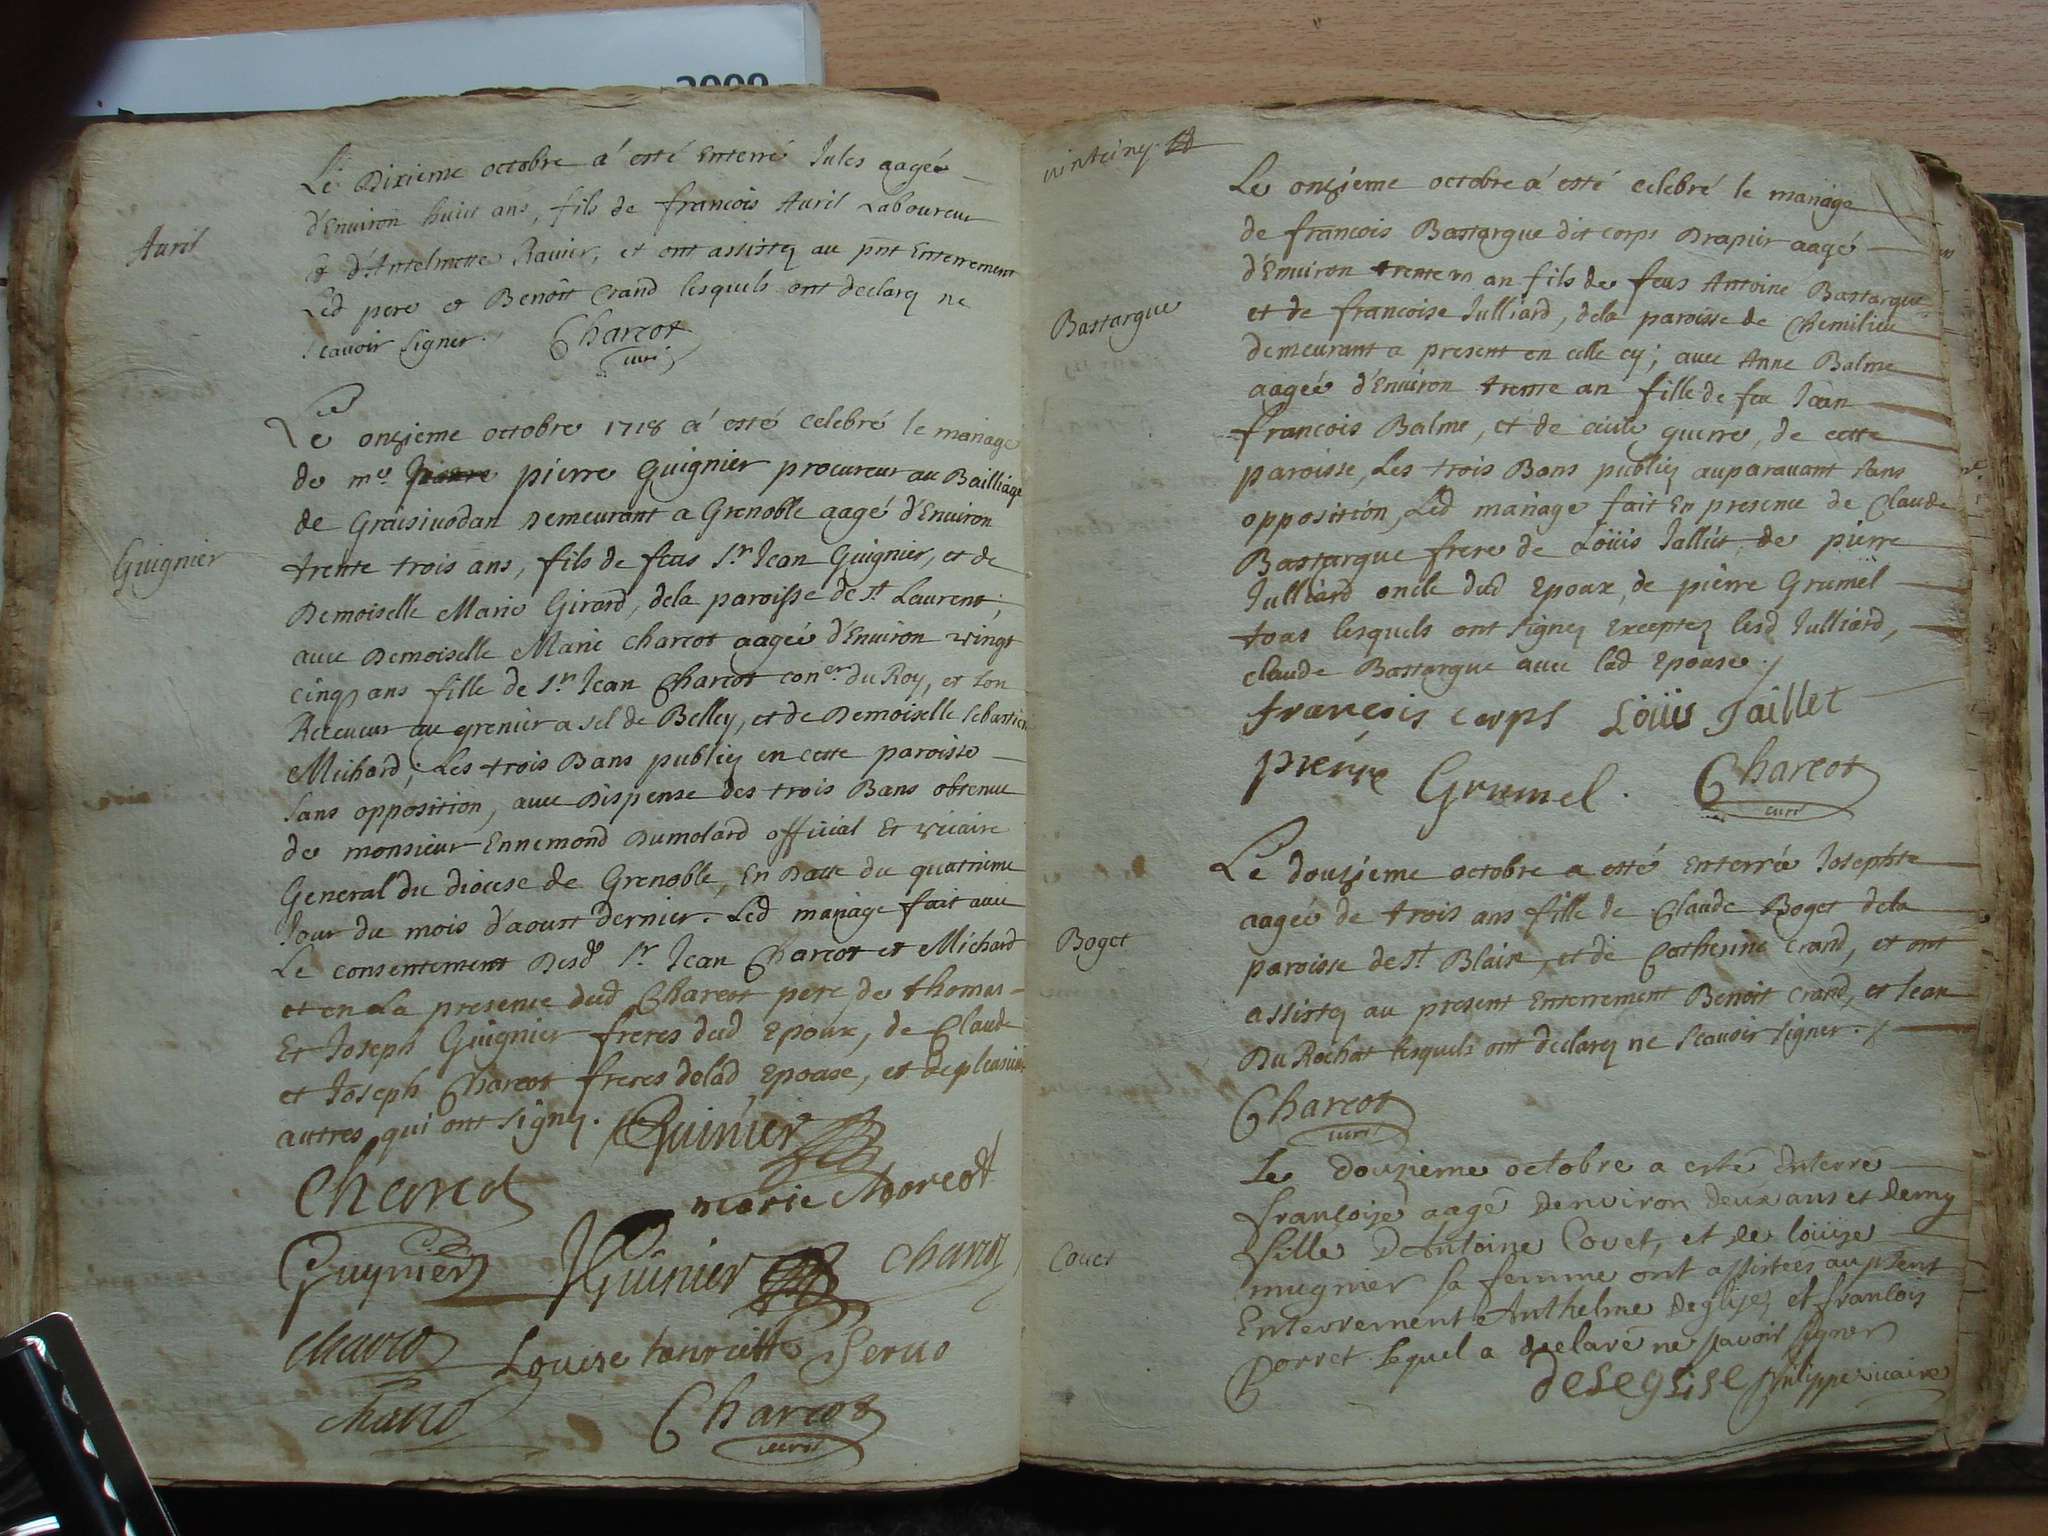 2009
Le Dixieme octobre a' esté Enterré Jules aagée
d'Environ huict ans, fils de francois Avril Laboureur
Avril
& d'Antelmette Ravier, et ont assistez au pnt Enterrement
Led pere et Benoît Crand lesquels ont declarez ne
scavoir signer. Charcot
curé
Le onzieme octobre 1718 a' esté celebré le mariage
de me. pierre Guignier procureur au Bailliage
de Graisivodan Demeurant a Grenoble aagé d'Environ
Guignier
trente trois ans, fils de feus Sr. Jean Guignier, et de
Demoiselle Marie Girard, dela paroisse de St Laurent;
avec Demoiselle Marie Charcot aagée d'Environ vingt
cinq ans fille de Sr. Jean Charcot coner. du Roy, et son
Receveur au grenier a sel de Belley, et de Demoiselle Sebastien
Michard; Les trois Bans publiez en cette paroisse
sans opposition, avec Dispense des trois Bans obtenue
de monsieur Ennemond Dumolard official Et vicaire
General du diocese de Grenoble, En Datte du quatrieme
Jour du mois d'aoust dernier. Led mariage fait avec
Le consentement Desd. Sr Jean Charcot et Michard
et en La presence dud Charcot pere, de thomas
Et Joseph Guignier freres dud Epoux, de Claude
et Joseph Charcot freres delad Epouse, et de plusieurs
autres qui ont signez. Guinier
Charcot
marie Charcot
Guynier JGuinier Charcot
Charcot Louise henriette
Charcot Charcot
curé
Le onzieme octobre a' esté celebré le mariage
de francois Bastargue dit corps Drapier aagé
d'Environ trente un an fils de feus Antoine Bastargue
Bastargue
et de francoise Julliard, dela paroisse de Chemilieu
demeurant a present en celle cy; avec Anne Balme
aagée d'Environ trente an fille de feu Jean
francois Balme, et de guerre, de cette
paroisse, Les trois Bans publiez auparavant sans
opposition, Led mariage fait En presence de Claude
Bastargue frere de Loüis Jallict, de pierre
Julliard oncle dud Epoux, de pierre Grumel
tous lesquels ont signez Exceptez lesd Julliard,
claude Bastargue avec lad Epouse./
françois corps Loüis Jaillet
pierre Grumel. Charcot
curé
Le douzieme octobre a esté Enterrée Josephte
aagée de trois ans fille de Claude Boget dela
Boget
paroisse de St Blaise, et de Catherine Crand, et ont
assistez au present Enterrement Benoit Crand, et Jean
Du Rochat lesquels ont declarez ne scavoir signer./
Charcot
curé
Le douzieme octobre a esté Enterré
françoise aagé denviron deux ans et demy
fille D'Antoine Covet, et de loüise
Covet
mugnier sa femme ont assistees au psent
Enterrement Anthelme Deglise, et francois
Porret lequel a declaré ne savoir signer
deleglise philippe vicaire